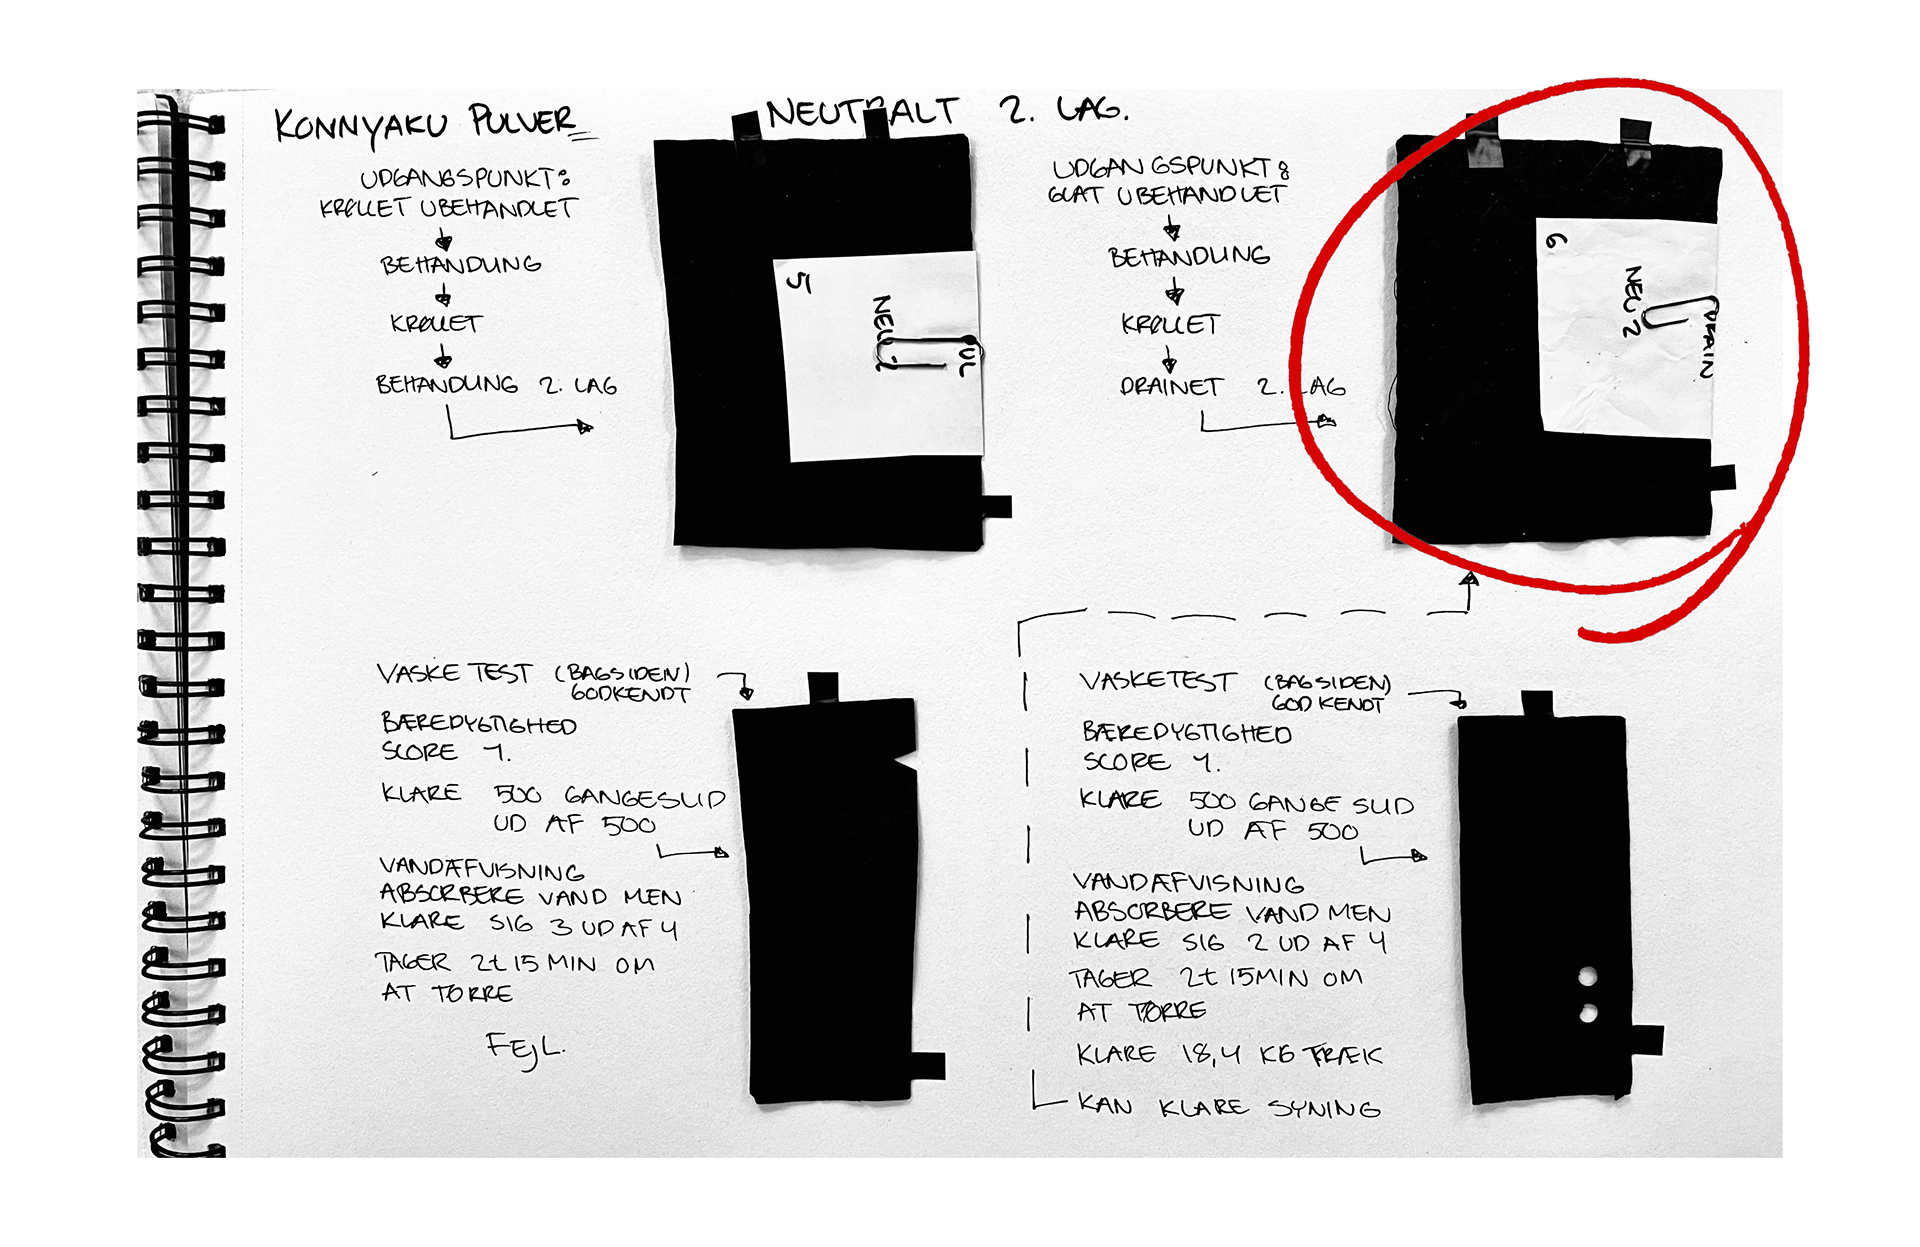 KONNYAKU PULVER
NEUTRALT 2. LAG.
UDGANGSPUNKT:
KRØLLET UBEHANDLET
BEHANDLING
KRØLLET
BEHANDLING 2. LAG
5
NEU 2
UDGANGSPUNKT:
GLAT UBEHANDLET
BEHANDLING
KRØLLET
DRAINET 2. LAG
6
NEU 2
DRAIN
VASKE TEST (BAGSIDEN)
GODKENDT
BÆREDYGTIGHED
SCORE 4.
KLARE 500 GANGE SLID
UD AF 500
VANDAFVISNING
ABSORBERE VAND MEN
KLARE SIG 3 UD AF 4
TAGER 2t 15 MIN OM
AT TØRRE
FEJL.
VASKETEST (BAGSIDEN)
GODKENDT
BÆREDYGTIGHED
SCORE 4.
KLARE 500 GANGE SLID
UD AF 500
VANDAFVISNING
ABSORBERE VAND MEN
KLARE SIG 2 UD AF 4
TAGER 2t 15 MIN OM
AT TØRRE
KLARE 18,4 KG TRÆK
KAN KLARE SYNING